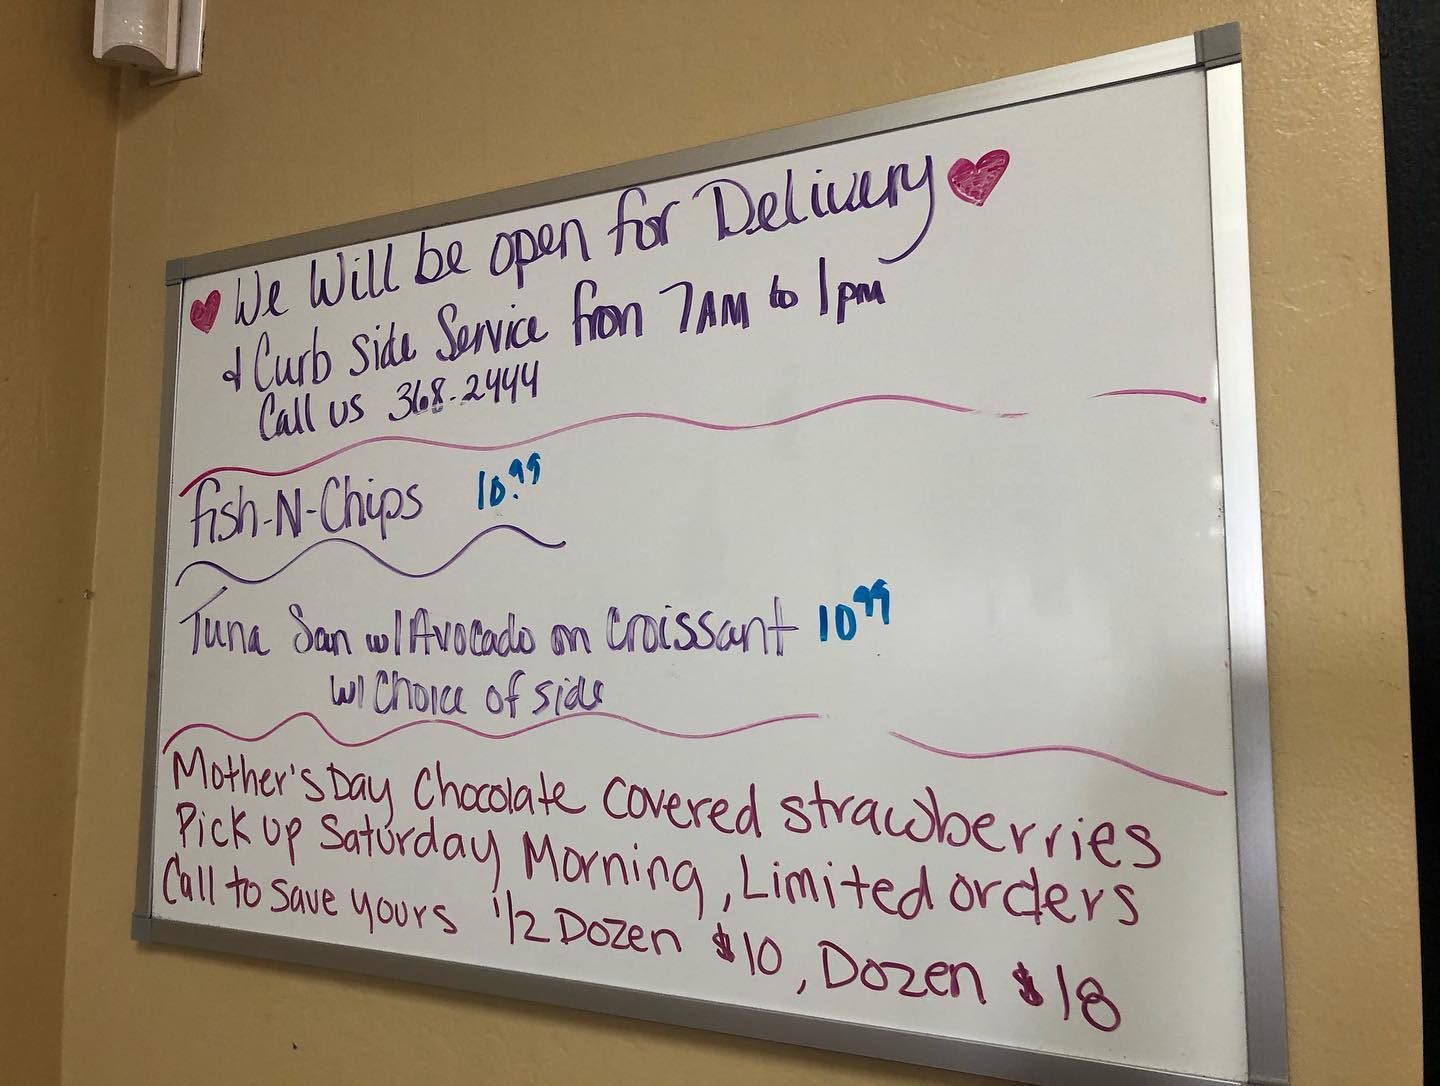 We Will be open for Delivery
& Curb side Service from 7AM to 1pm
Call us 368-2444
fish-N-Chips 10.99
Tuna San w/Avocado on Croissant 10 99
w/ Choice of side
Mother's Day Chocolate covered strawberries
Pick up Saturday Morning, Limited orders
Call to save yours 1/2 Dozen $10, Dozen $18